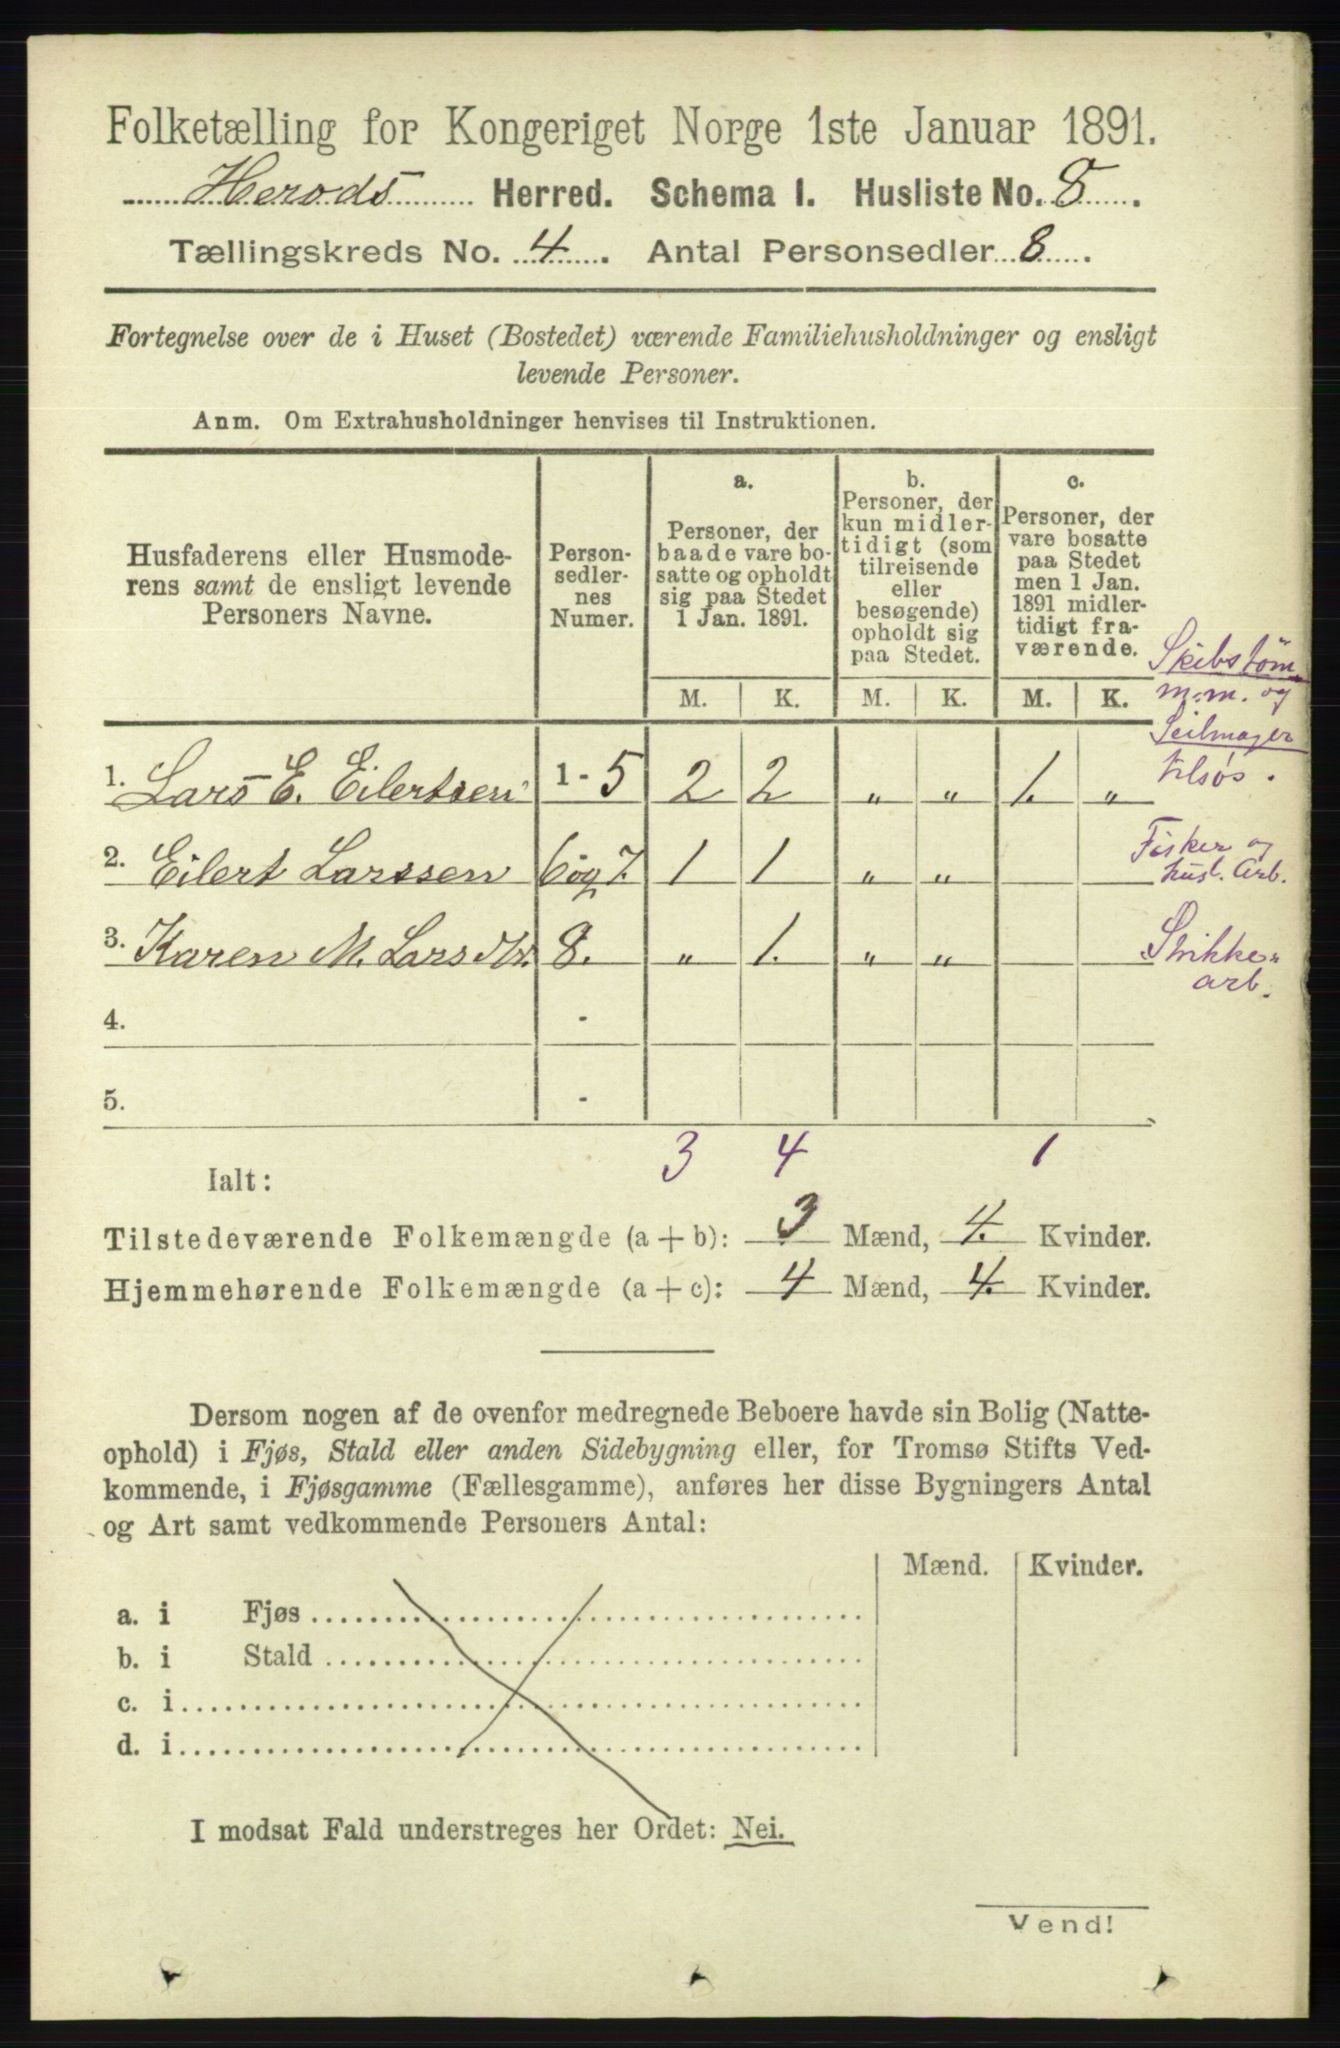 Folketælling for Kongeriget Norge 1ste Januar 1891.
Herods Herred. Schema I. Husliste No. 8.
Tællingskreds No. 4. Antal Personsedler 8.
Fortegnelse over de i Huset (Bostedet) værende Familiehusholdninger og ensligt
levende Personer.
Anm. Om Extrahusholdninger henvises til Instruktionen.
Husfaderens eller Husmode-
rens samt de ensligt levende
Personers Navne.
Person-
sedler-
nes
Numer.
a.
Personer, der
baade vare bo-
satte og opholdt
sig paa Stedet
1 Jan. 1891.
b.
Personer, der
kun midler-
tidigt (som
tilreisende
eller
besøgende)
opholdt sig
paa Stedet.
c.
Personer, der
vare bosatte
paa Stedet
men 1 Jan.
1891 midler-
tidigt fra-
værende.
M. K. M. K. M. K.
Skibstøm
m.m. og
Seilmager
tilsøs.
1. Lars E. Eilertsen 1 - 5 2 2 " " 1. "
2. Eilert Larssen 6 og 7. 1 1 " "
Fisker og
husl. Arb.
3. Karen M. Larsdtr. 8. " 1. " "
Strikke-
arb.
4. -
5. -
3 4 1
Ialt:
Tilstedeværende Folkemængde (a + b): 3 Mænd, 4. Kvinder.
Hjemmehørende Folkemængde (a + c): 4 Mænd, 4. Kvinder.
Dersom nogen af de ovenfor medregnede Beboere havde sin Bolig (Natte-
ophold) i Fjøs, Stald eller anden Sidebygning eller, for Tromsø Stifts Ved-
kommende, i Fjøsgamme (Fællesgamme), anføres her disse Bygningers Antal
og Art samt vedkommende Personers Antal:
Mænd. Kvinder.
a. i Fjøs
b. i Stald
c. i
d. i
I modsat Fald understreges her Ordet: Nei.
Vend!